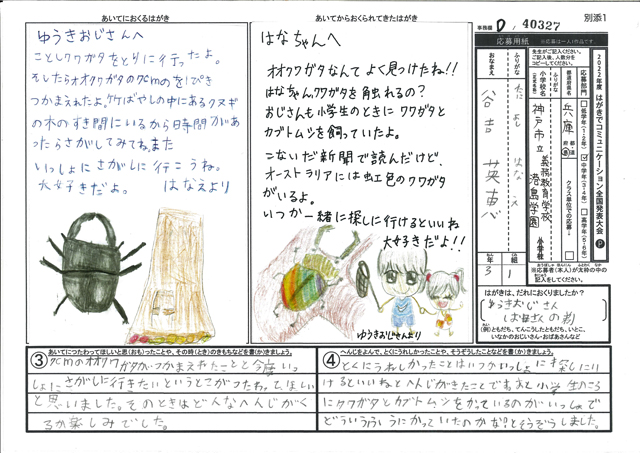 別添1
あいてにおくるはがき
ゆうきおじさんへ
ことしクワガタをとりに行ったよ。
そしたらオオクワガタの7cmのを1ぴき
つかまえれたよ。竹ばやしの中にあるクヌギ
の木のすき間にいるから日時間があ
ったらさがしてみてねまた
いっしょにさがしに行こうね。
大好きだよ。 はなえより
あいてからおくられてきたはがき
はなちゃんへ
オオクワガタなんてよく見つけたね!!
はなちゃんクワガタを触れるの?
おじさんも小学生のときにクワガタと
カブトムシを飼っていたよ。
こないだ新聞で読んだけど、
オーストラリアには虹色のクワガタ
がいるよ。
いつか一緒に探しに行けるといいね
大好きだよ!!
ゆうきおじさんより
事務局 D / 40327
応募用紙 ※応募は一人1作品です。
先生がご記入ください。
ご記入後、人数分を
コピーしてください。
2022年度 はがきでコミュニケーション全国発表大会 P
応募部門
低学年(1・2年)
中学年(3・4年)
高学年(5・6年)
都道府県名
兵庫
クラス単位での応募
小学校名
神戸市立
義務教育学校
港島学園
小学校
ふりがな
おなまえ
谷吉 英恵
年 組
3 1
※応募者(本人)が太枠の中の
記入をしてください。
はがきは、だれにおくりましたか?
ゆうきおじさん
お母さんの弟
(例)ともだち、てんこうしたともだち、いとこ、
いなかのおじいさん・おばあさんなど
③ あいてにつたわってほしいと思(おも)ったことや、その時(とき)のきもちなどを書(か)きましょう。
7cmのオオクワガタがつかまえれたことと今度いっ
しょにさがしに行きたいということがつたわってほしい
と思いました。そのときはどんなへんじがく
るか楽しみでした。
④ へんじをよんで、とくにうれしかったことや、そうぞうしたことなどを書(か)きましょう。
とくにうれしかったことはいつかいっしょに探しにい
けるといいねとへんじがきたことです。おじさんも小学生のころ
にクワガタとカブトムシをかっているのがいっしょで
どういうふうにかっていたのかな?とそうぞうしました。